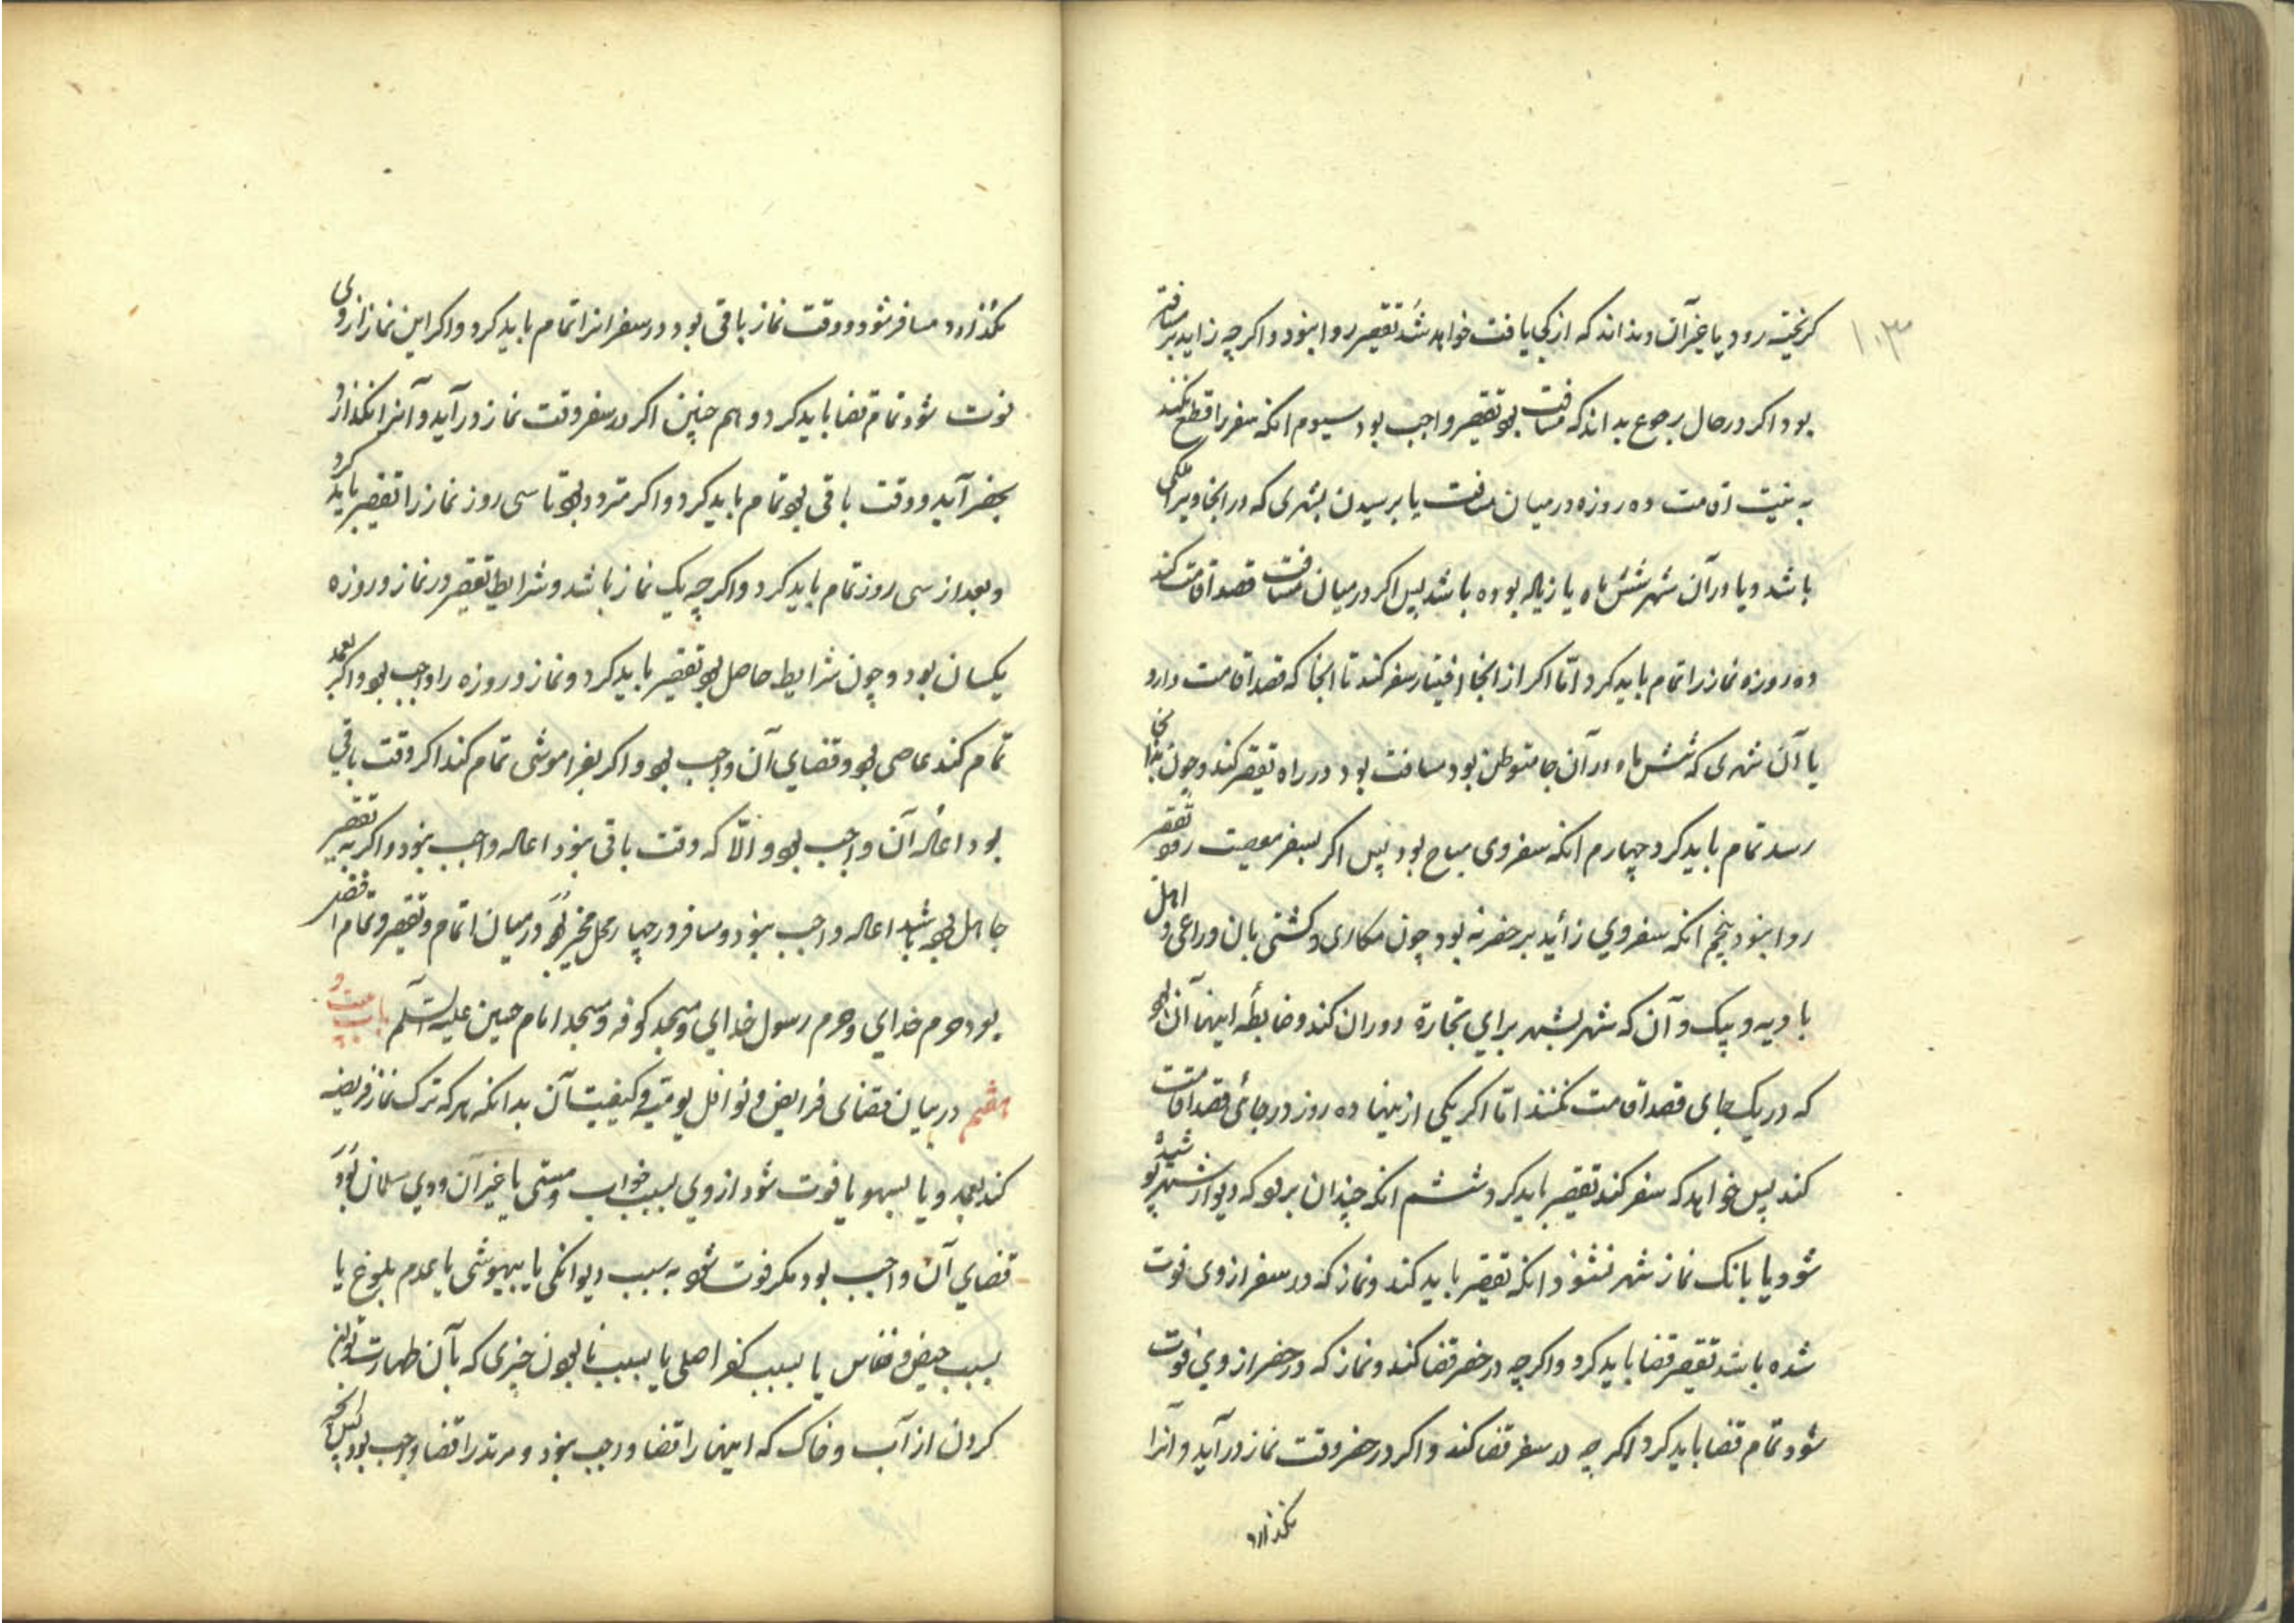 ۱۰۳
کریخته رود یا غیر آن و نداند که از کجا یافت خواهد شد تقصیر روا نبود و اکرچه زاید بر مسافت
بود اکر در حال رجوع بداند که مسافت بود تقصیر واجب بود سیوم انکه سفر را قطع نکند
به نیت اقامت ده روزه در میان مسافت یا برسیدن بشهری که در انجا ویرا ملکی
باشد و یا در آن شهر شش ماه یا زیاده بوده باشد پس اکر در میان مسافت قصد اقامت کند
ده روزه نماز را تمام باید کرد امّا اکر از انجا اختیار سفر کند تا انجا که قصد اقامت دارد
یا آن شهری که شش ماه در آن جا متوطن بود مسافت بود در راه تقصیر کند و چون بدانجا
رسد تمام باید کرد چهارم انکه سفر وی مباح بود پس اکر بسفر معصیت رود تقصیر
روا نبود پنجم انکه سفر وی زائید بر حضر نه بود چون مکاری و کشتی بان و راعی و اهل
بادیه و پیک و آن که شهر بشهر برای تجارة دوران کند و ضابطه اینها آن بود
که در یک جای قصد اقامت نکنند امّا اکر یکی از ینها ده روز در جائی قصد اقامت
کند پس خواهد که سفر کند تقصیر باید کرد ششم انکه چندان برود که دیوار شهر پوشیده
شود یا بانک نماز شهر نشنود انکه تقصیر باید کند و نماز که در سفر از وی فوت
شده باشد تقصیر قضا باید کرد و اکرچه در حضر قضا کند و نماز که در حضر از وی فوت
شود تمام قضا باید کرد اکرچه در سفر قضا کند و اکر در حضر وقت نماز در آید و آنرا
نکذارد
نکذارد مسافر شود و وقت نماز باقی بود در سفر انرا تمام باید کرد و اکر این نماز از وی
فوت شود تمام قضا باید کرد و هم چنین اکر در سفر وقت نماز در آید و آنرا نکذارد
بحضر آید و وقت باقی بود تمام باید کرد و اکر متردد بود تا سی روز نماز را تقصیر باید کرد
و بعد از سی روز تمام باید کرد و اکرچه یک نماز باشد و شرایط تقصیر در نماز و روزه
یکسان بود و چون شرایط حاصل بود تقصیر باید کرد و نماز و روزه را واجب بود و اکر بعمد
تمام کند عاصی بود و قضای آن واجب بود و اکر بفراموشی تمام کند اکر وقت باقی
بود اعاده آن واجب بود و الّا که وقت باقی نبود اعاده واجب نبود و اکر به تقصیر
جاهل بوده باشد اعاده واجب نبود و مسافر در چهار محل مخیر بود در میان اتمام و تقصیر و تمام افضل
بود حرم خدای و حرم رسول خدای و مسجد کوفه و مسجد امام حسین علیه السّلم باب بیست و
هشتم در بیان قضای فرایض و نوافل یومیّه و کیفیت آن بدانکه هر که ترک نماز فریضه
کند بعمد و یا بسهو یا فوت شود از وی بسبب خواب و مستی یا غیر آن و وی مسلمان بود
قضای آن واجب بود مکر فوت شود به سبب دیوانکی یا بیهوشی یا عدم بلوغ یا
بسبب حیض و نفاس یا بسبب کفر اصلی یا بسبب نابودن چیزی که بآن طهارت توان
کردن از آب و خاک که اینها را قضا واجب نبود و مرتد را قضا واجب بود پس انچه